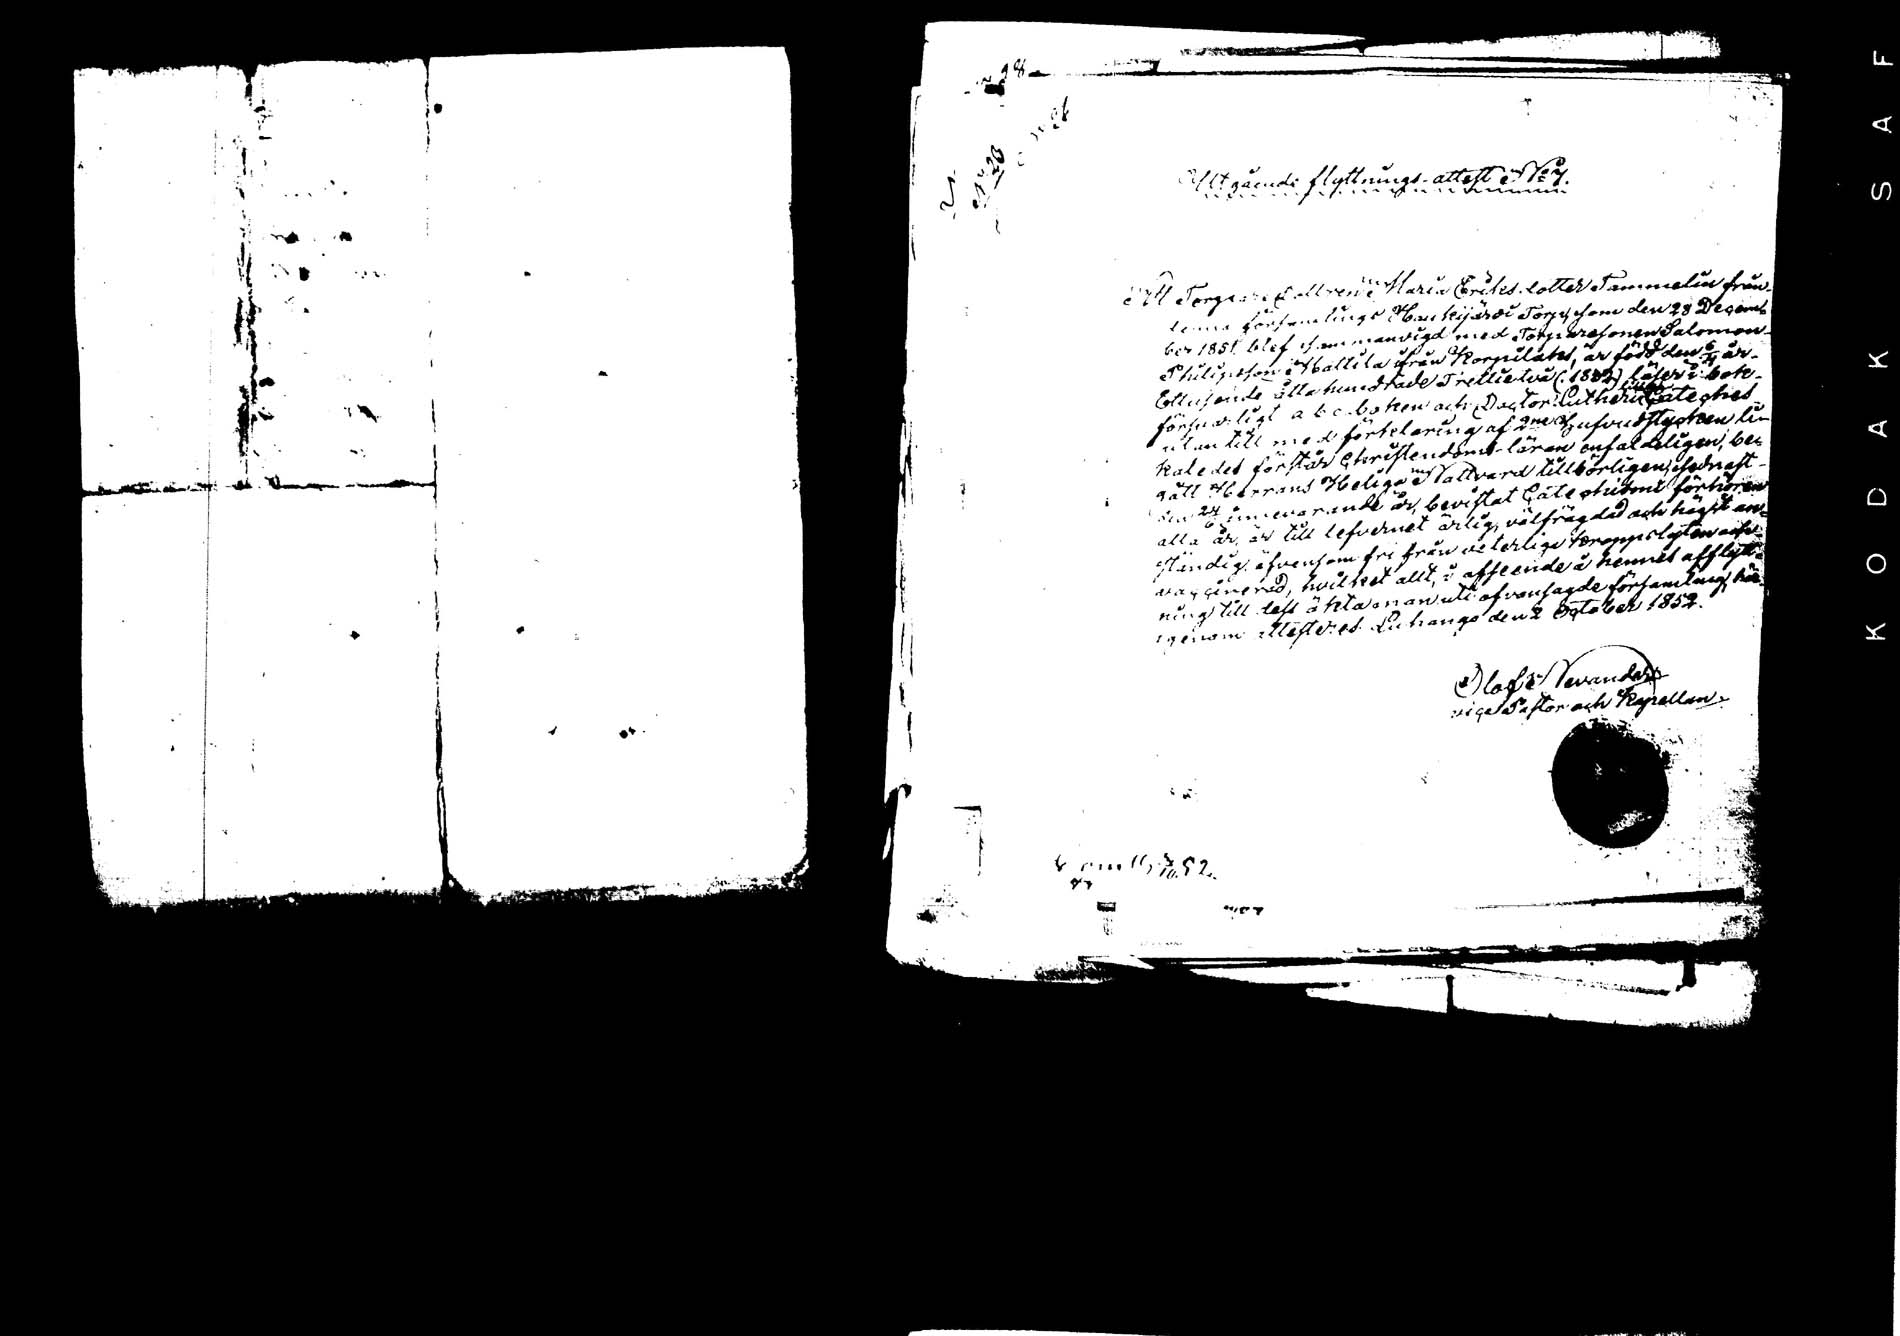 98
Utgående flyttnings-attest No 7.
Att Torpare Dottren Maria Eriksdotter Tammelin från
denna församlings Haukijärvi Torp, som den 28 Decem-
ber 1851 blef sammanvigd med Torparesonen Salomon
Philipsson Mattila från Korpilaks, är född den 6/4 år
Ettusende åttahundrade Trettietvå (1832) läser i bok
försvarligt abc-boken och Doctor Lutheri Lilla Cateches
utantill med förklaring af 2ne Hufvudstycken li-
kaledes förstår Christendoms-läran enfaldeligen, be-
gått Herrans Heliga Nattvard tillbörligen, sednast
den 24/6 innevarande år, bevistat Catechismi förhören
alla år, är till lefvernet ärlig, välfrägdad och högst an-
ständig, äfvensom fri från veterliga kroppslyten och
vaccinerad, hvilket allt, i afseende å hennes afflytt-
ning till dess äkta man uti ofvansagde församling, här-
igenom attesteras. Luhango den 2 October 1852.
Olof Nevander
vice Pastor och Kapellan
52.